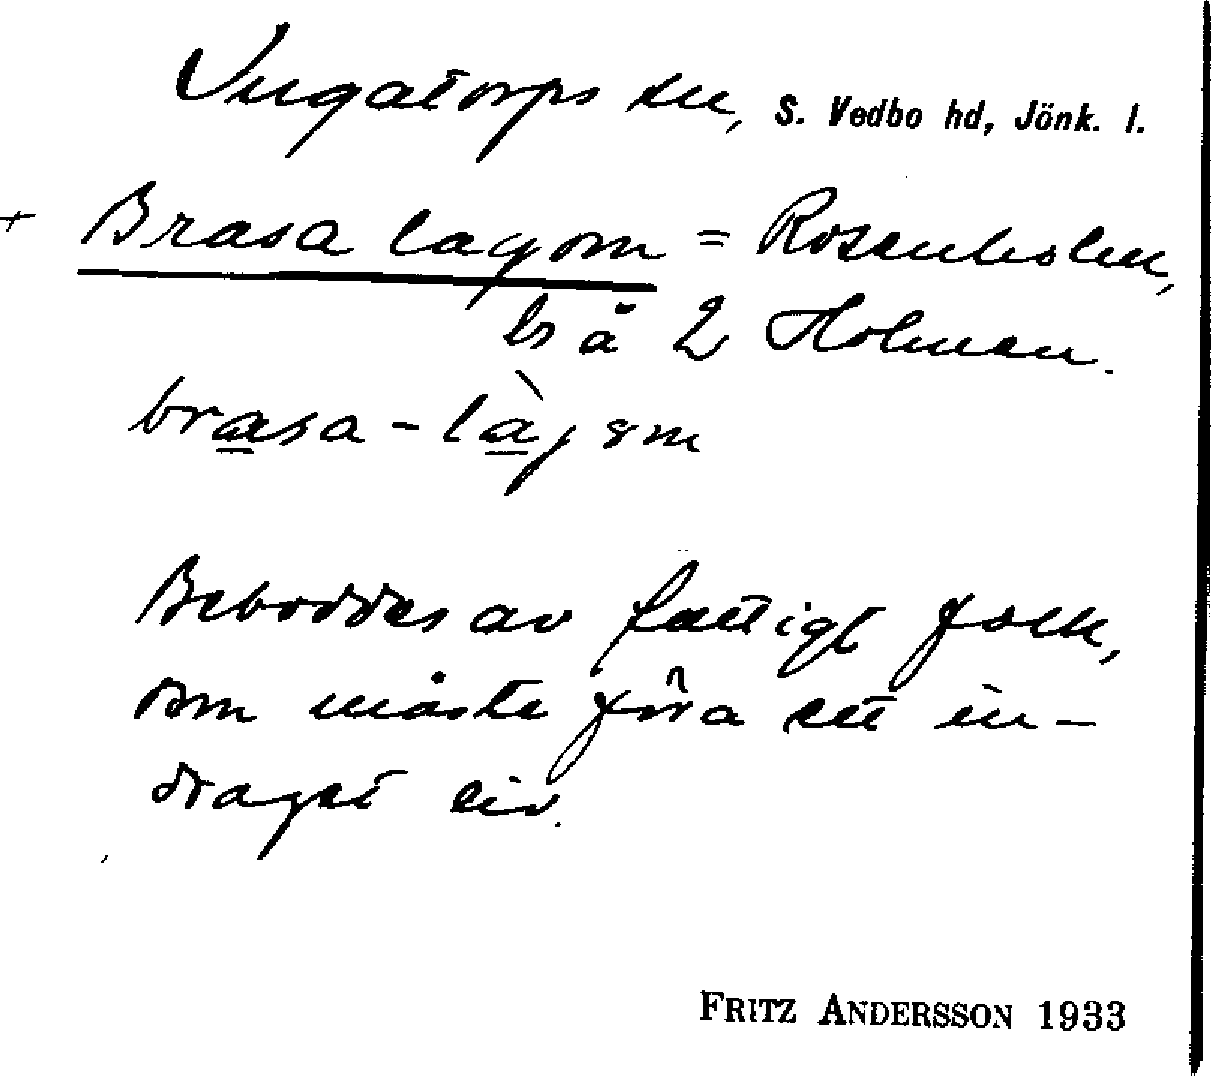 Ingatorps sn, S. Vedbo hd, Jönk. l.
+ Brasa lagom = Rosenholm,
ls å 2 Holmen.
brasa - làgəm
Beboddes av fattigt folk,
som måste föra ett in-
draget liv.
FRITZ ANDERSSON 1933